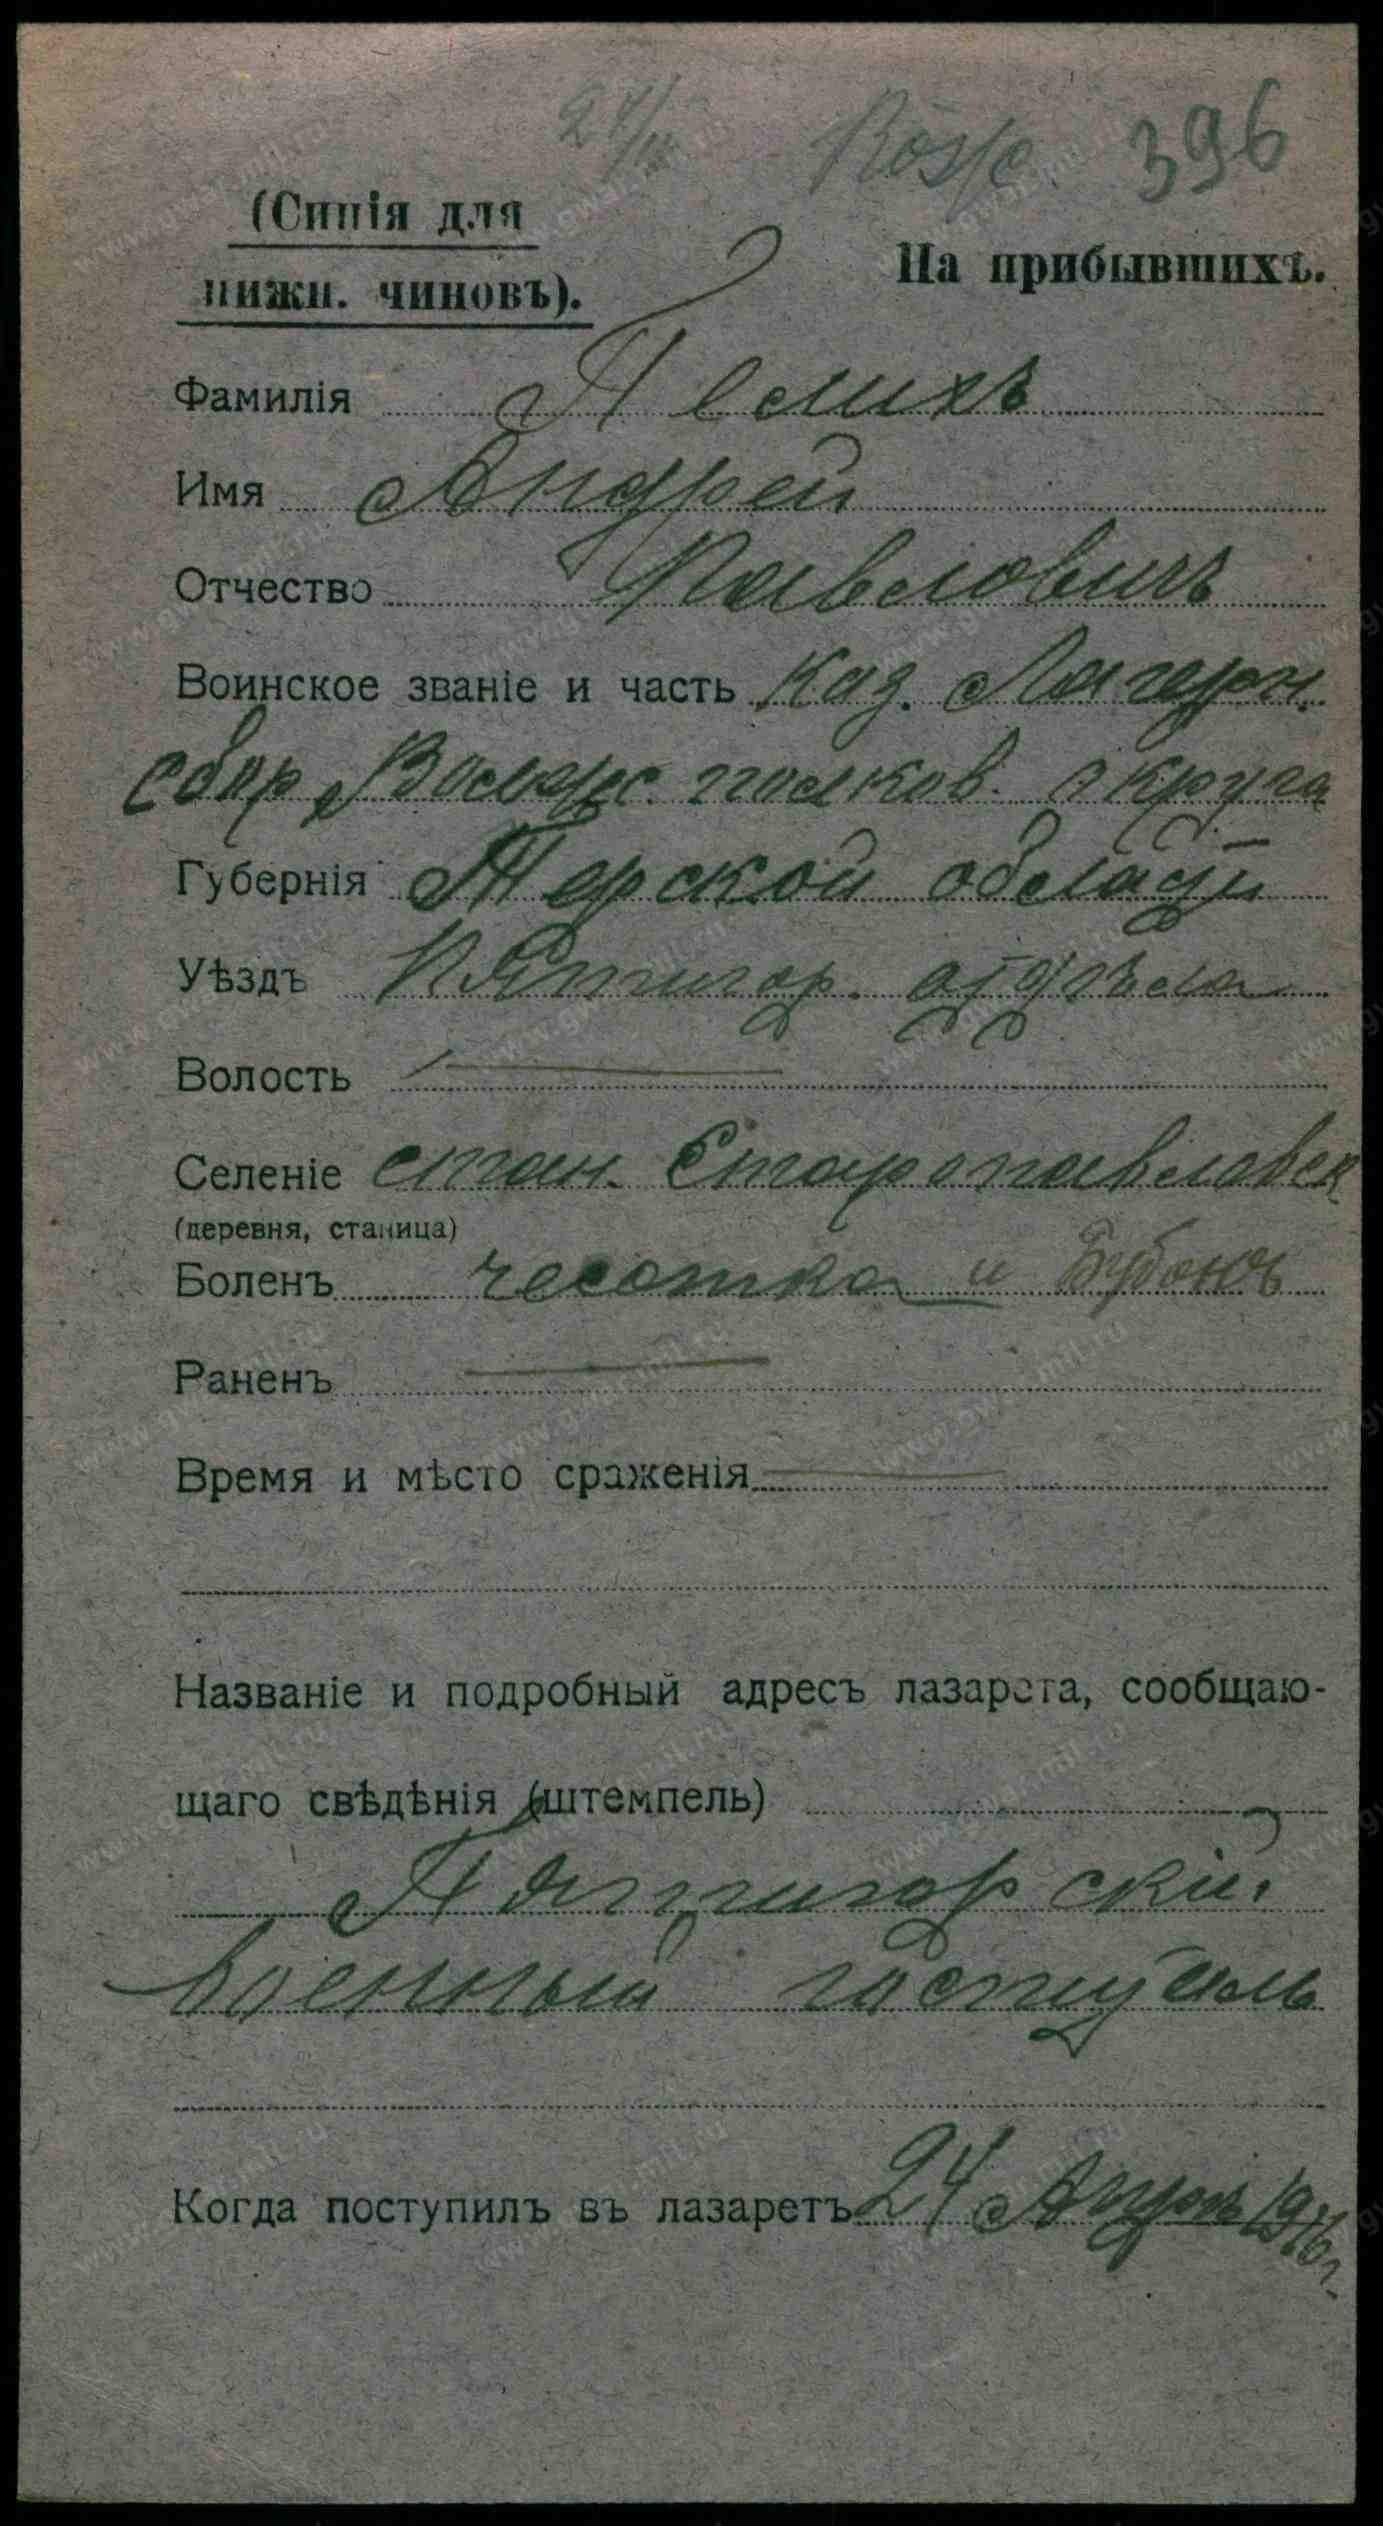 24/IV 396
(Синія для
нижн. чиновъ).
На прибывшихъ.
Фамилія Пемихъ
Имя Андрей
Отчество Павловичъ
Воинское званіе и часть Каз. Лагерн.
сбор Волжс. полков. округа
Губернія Терской области
Уѣздъ Пятигор. отдѣла
Волость
Селеніе стан. Старопавловск
(деревня, станица)
Боленъ чесотка и Бубонъ
Раненъ
Время и мѣсто сраженія
Названіе и подробный адресъ лазарета, сообщаю-
щаго свѣдѣнія (штемпель)
Пятигорскій
военный госпиталь
Когда поступилъ въ лазаретъ 24 Апрѣл 1916 г.